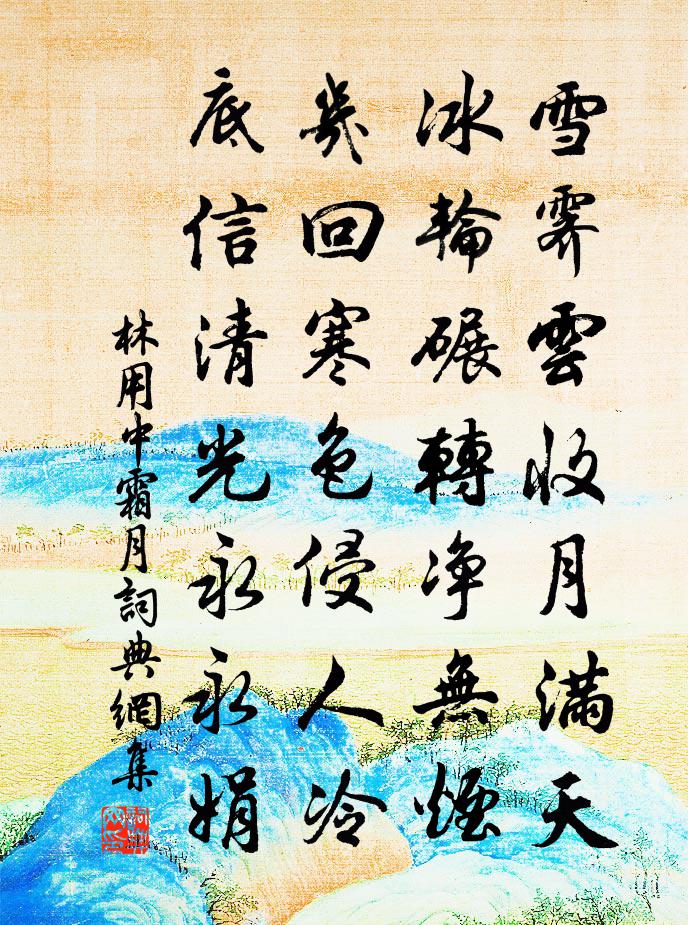 雪霽雲收月滿天
冰輪碾轉淨無煙
幾回寒色侵人冷
底信清光永永娟
林用中霜月詞典網集